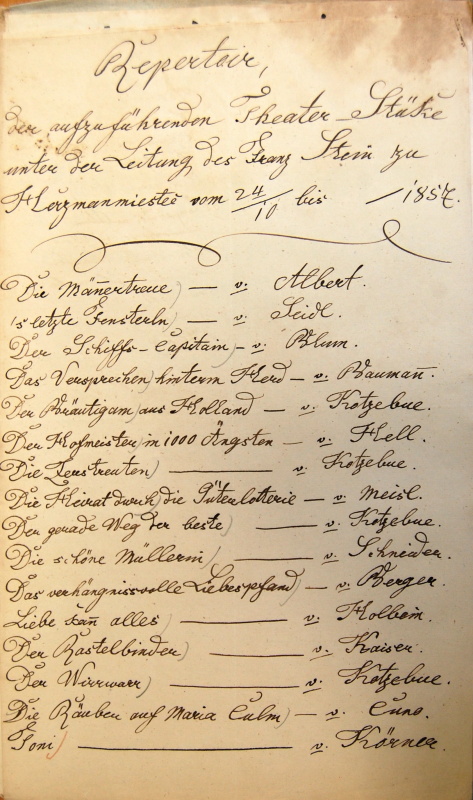 Repertoir,
der aufzuführenden Theater-Stüke
unter der Leitung des Franz Stein zu
Herzmanmiestec vom 24/10 bis / 1857.
Die Mäñertreue) — v. Albert.
's letzte Fensterln) — v. Seidl.
Der Schiffs-Capitain) — v. Blum.
Das Versprechen) hinterm Herd — v. Baumañ.
Der Bräutigam) aus Holland — v. Kotzebue.
Der Hofmeister) in 1000 Ängsten — v. Hell.
Die Zerstreuten) — v. Kotzebue.
Die Heirat durch die Güterlotterie — v. Meisl.
Der gerade Weg der beste) — v. Kotzebue.
Die schöne Müllerin) — v. Schneider.
Das verhängnissvolle Liebespfand) — v. Berger.
Liebe kañ alles) — v. Holbein.
Der Rastelbinder) — v. Kaiser.
Der Wirrwarr) — v. Kotzebue.
Die Räuber auf Maria Culm) — v. Cuno.
Toni) — v. Körner.